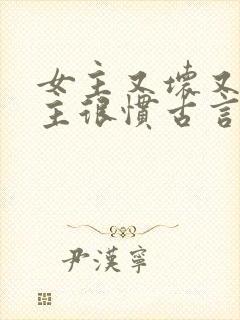 女主又壞又
主很慣古言
尹漢寧